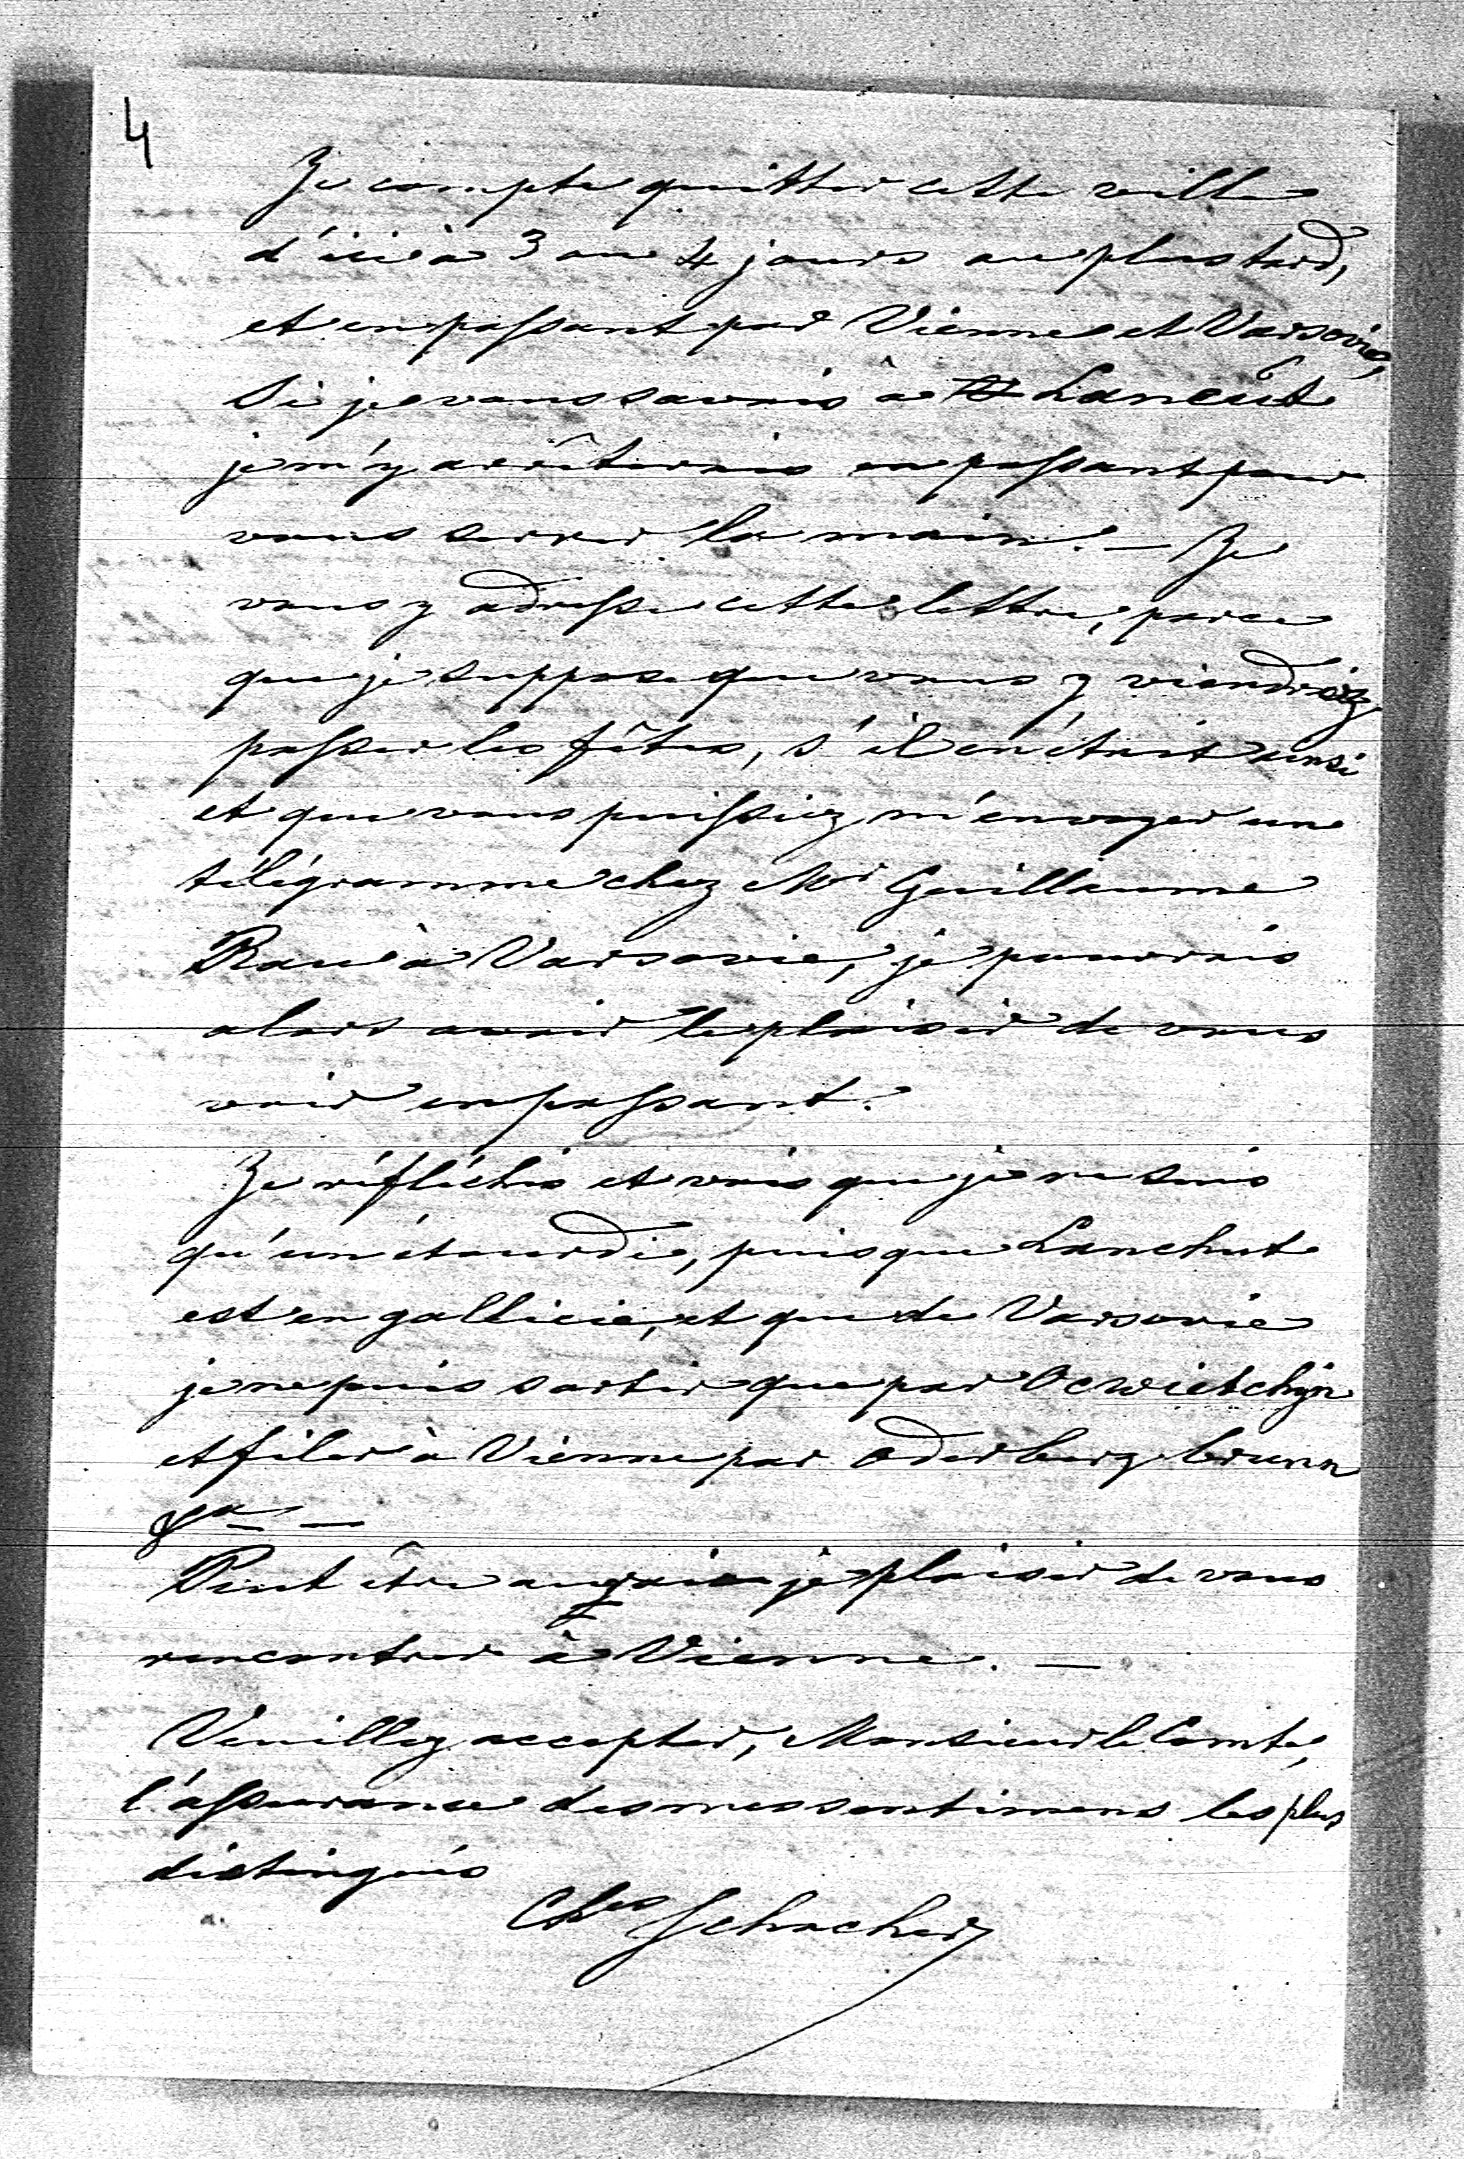 4
Je compte quitter cette ville
d'ici à 3 ou 4 jours au plus tard,
et en passant par Vienne et Varsovie,
Si je vous savais à Lancut
je m'y arrêterais en passant pour
vous serrer la main. — Je
vous y adresse cette lettre, parce
que je suppose que vous y viendrez
passer les fêtes, s'il en était ainsi
et que vous puissiez m'envoyer une
télégramme chez Mr Guillaume
Rau à Varsovie, je pourrais
alors avoir le plaisir de vous
voir en passant.
Je réfléchis et vois que je ne suis
qu'un étourdi, puisque Lanchut
est en gallicie, et que de Varsovie
je ne puis sortir que par Ocwietchyn
et filer à Vienne par Oderberg brunn
&a —
Peut être aurais je plaisir de vous
rencontrer à Vienne. —
Veuillez accepter, Monsieur le Comte,
l'assurance des mes sentimens les plus
distingués
Ches Schacher